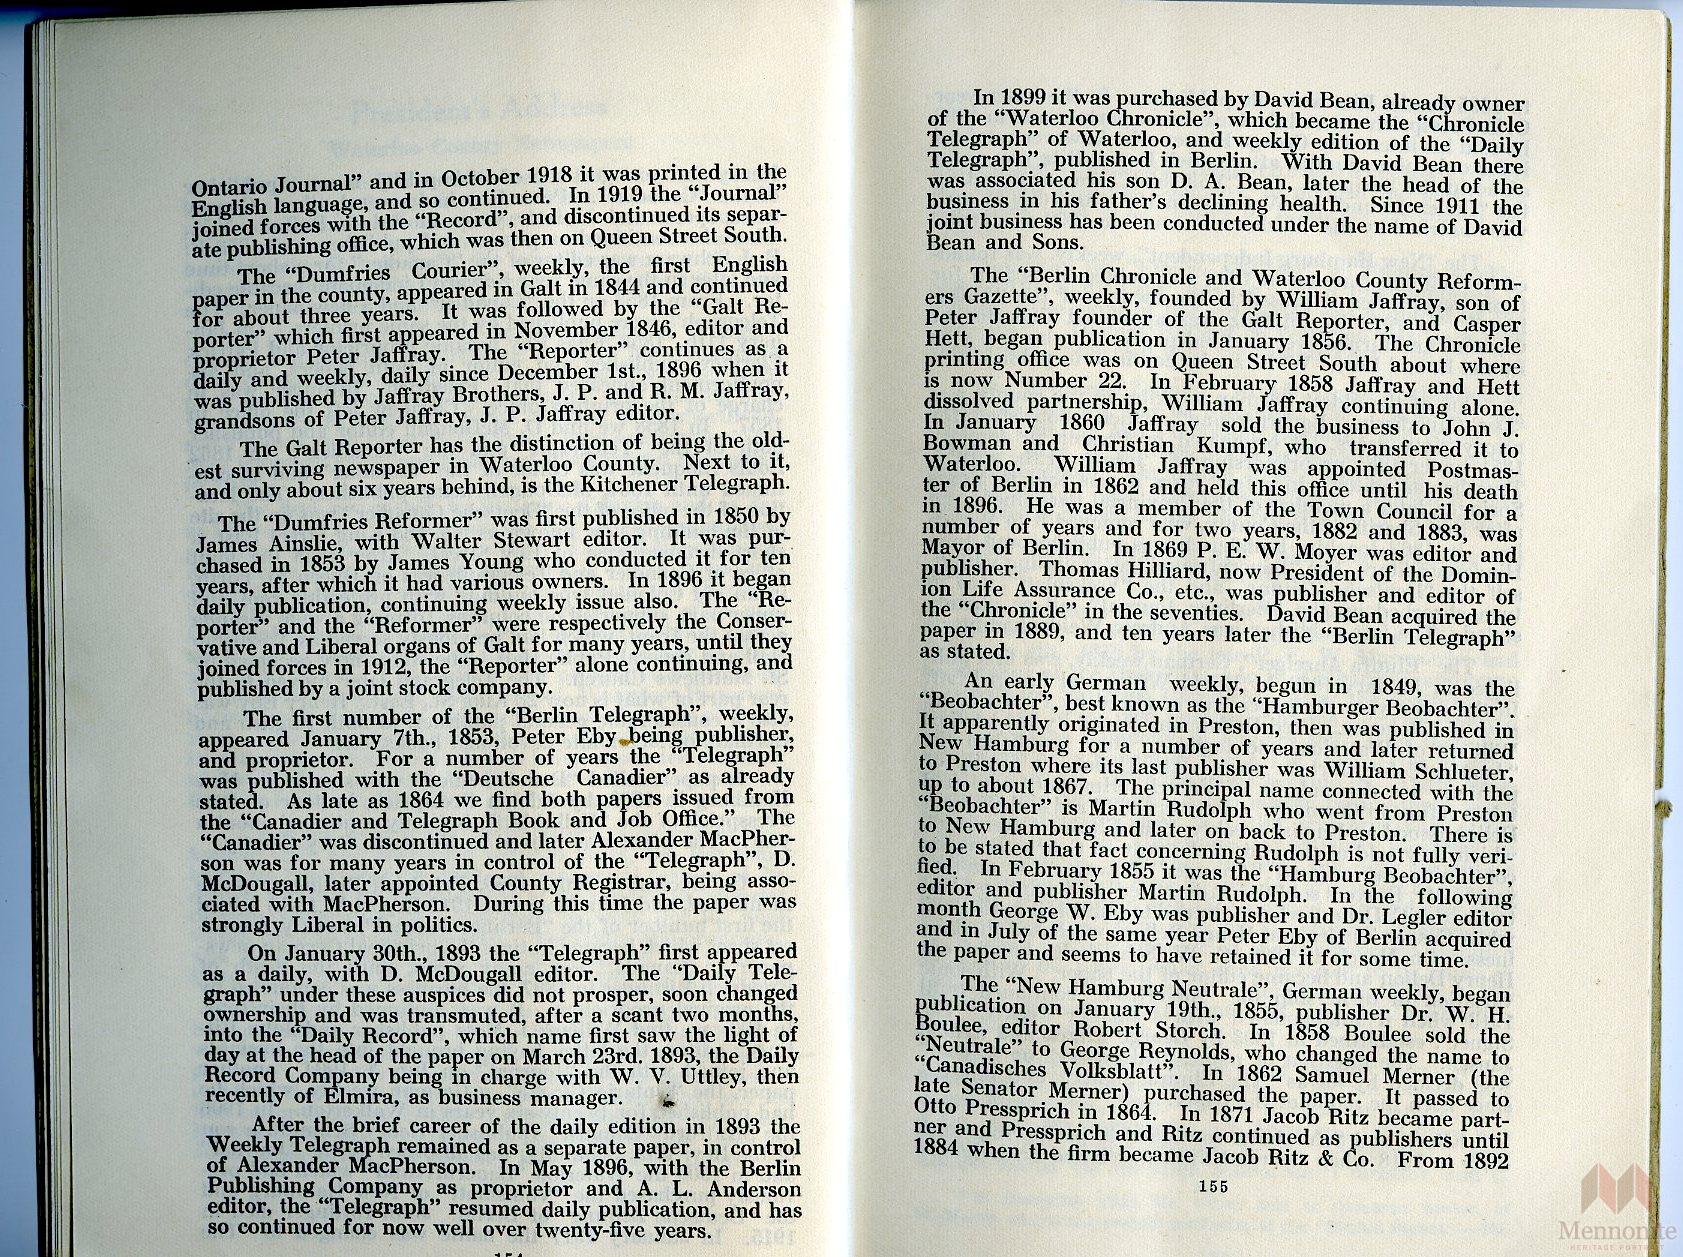 Ontario Journal” and in October 1918 it was printed in the
English language, and so continued. In 1919 the “Journal”
joined forces with the “Record”, and discontinued its separ-
ate publishing office, which was then on Queen Street South.
The “Dumfries Courier”, weekly, the first English
paper in the county, appeared in Galt in 1844 and continued
for about three years. It was followed by the “Galt Re-
porter” which first appeared in November 1846, editor and
proprietor Peter Jaffray. The “Reporter” continues as a
daily and weekly, daily since December 1st., 1896 when it
was published by Jaffray Brothers, J. P. and R. M. Jaffray,
grandsons of Peter Jaffray, J. P. Jaffray editor.
The Galt Reporter has the distinction of being the old-
est surviving newspaper in Waterloo County. Next to it,
and only about six years behind, is the Kitchener Telegraph.
The “Dumfries Reformer” was first published in 1850 by
James Ainslie, with Walter Stewart editor. It was pur-
chased in 1853 by James Young who conducted it for ten
years, after which it had various owners. In 1896 it began
daily publication, continuing weekly issue also. The “Re-
porter” and the “Reformer” were respectively the Conser-
vative and Liberal organs of Galt for many years, until they
joined forces in 1912, the “Reporter” alone continuing, and
published by a joint stock company.
The first number of the “Berlin Telegraph”, weekly,
appeared January 7th., 1853, Peter Eby being publisher,
and proprietor. For a number of years the “Telegraph”
was published with the “Deutsche Canadier” as already
stated. As late as 1864 we find both papers issued from
the “Canadier and Telegraph Book and Job Office.” The
“Canadier” was discontinued and later Alexander MacPher-
son was for many years in control of the “Telegraph”, D.
McDougall, later appointed County Registrar, being asso-
ciated with MacPherson. During this time the paper was
strongly Liberal in politics.
On January 30th., 1893 the “Telegraph” first appeared
as a daily, with D. McDougall editor. The “Daily Tele-
graph” under these auspices did not prosper, soon changed
ownership and was transmuted, after a scant two months,
into the “Daily Record”, which name first saw the light of
day at the head of the paper on March 23rd. 1893, the Daily
Record Company being in charge with W. V. Uttley, then
recently of Elmira, as business manager.
After the brief career of the daily edition in 1893 the
Weekly Telegraph remained as a separate paper, in control
of Alexander MacPherson. In May 1896, with the Berlin
Publishing Company as proprietor and A. L. Anderson
editor, the “Telegraph” resumed daily publication, and has
so continued for now well over twenty-five years.
In 1899 it was purchased by David Bean, already owner
of the “Waterloo Chronicle”, which became the “Chronicle
Telegraph” of Waterloo, and weekly edition of the “Daily
Telegraph”, published in Berlin. With David Bean there
was associated his son D. A. Bean, later the head of the
business in his father’s declining health. Since 1911 the
joint business has been conducted under the name of David
Bean and Sons.
The “Berlin Chronicle and Waterloo County Reform-
ers Gazette”, weekly, founded by William Jaffray, son of
Peter Jaffray founder of the Galt Reporter, and Casper
Hett, began publication in January 1856. The Chronicle
printing office was on Queen Street South about where
is now Number 22. In February 1858 Jaffray and Hett
dissolved partnership, William Jaffray continuing alone.
In January 1860 Jaffray sold the business to John J.
Bowman and Christian Kumpf, who transferred it to
Waterloo. William Jaffray was appointed Postmas-
ter of Berlin in 1862 and held this office until his death
in 1896. He was a member of the Town Council for a
number of years and for two years, 1882 and 1883, was
Mayor of Berlin. In 1869 P. E. W. Moyer was editor and
publisher. Thomas Hilliard, now President of the Domin-
ion Life Assurance Co., etc., was publisher and editor of
the “Chronicle” in the seventies. David Bean acquired the
paper in 1889, and ten years later the “Berlin Telegraph”
as stated.
An early German weekly, begun in 1849, was the
“Beobachter”, best known as the “Hamburger Beobachter”.
It apparently originated in Preston, then was published in
New Hamburg for a number of years and later returned
to Preston where its last publisher was William Schlueter,
up to about 1867. The principal name connected with the
“Beobachter” is Martin Rudolph who went from Preston
to New Hamburg and later on back to Preston. There is
to be stated that fact concerning Rudolph is not fully veri-
fied. In February 1855 it was the “Hamburg Beobachter”,
editor and publisher Martin Rudolph. In the following
month George W. Eby was publisher and Dr. Legler editor
and in July of the same year Peter Eby of Berlin acquired
the paper and seems to have retained it for some time.
The “New Hamburg Neutrale”, German weekly, began
publication on January 19th., 1855, publisher Dr. W. H.
Boulee, editor Robert Storch. In 1858 Boulee sold the
“Neutrale” to George Reynolds, who changed the name to
“Canadisches Volksblatt”. In 1862 Samuel Merner (the
late Senator Merner) purchased the paper. It passed to
Otto Pressprich in 1864. In 1871 Jacob Ritz became part-
ner and Pressprich and Ritz continued as publishers until
1884 when the firm became Jacob Ritz & Co. From 1892
155
Mennonite